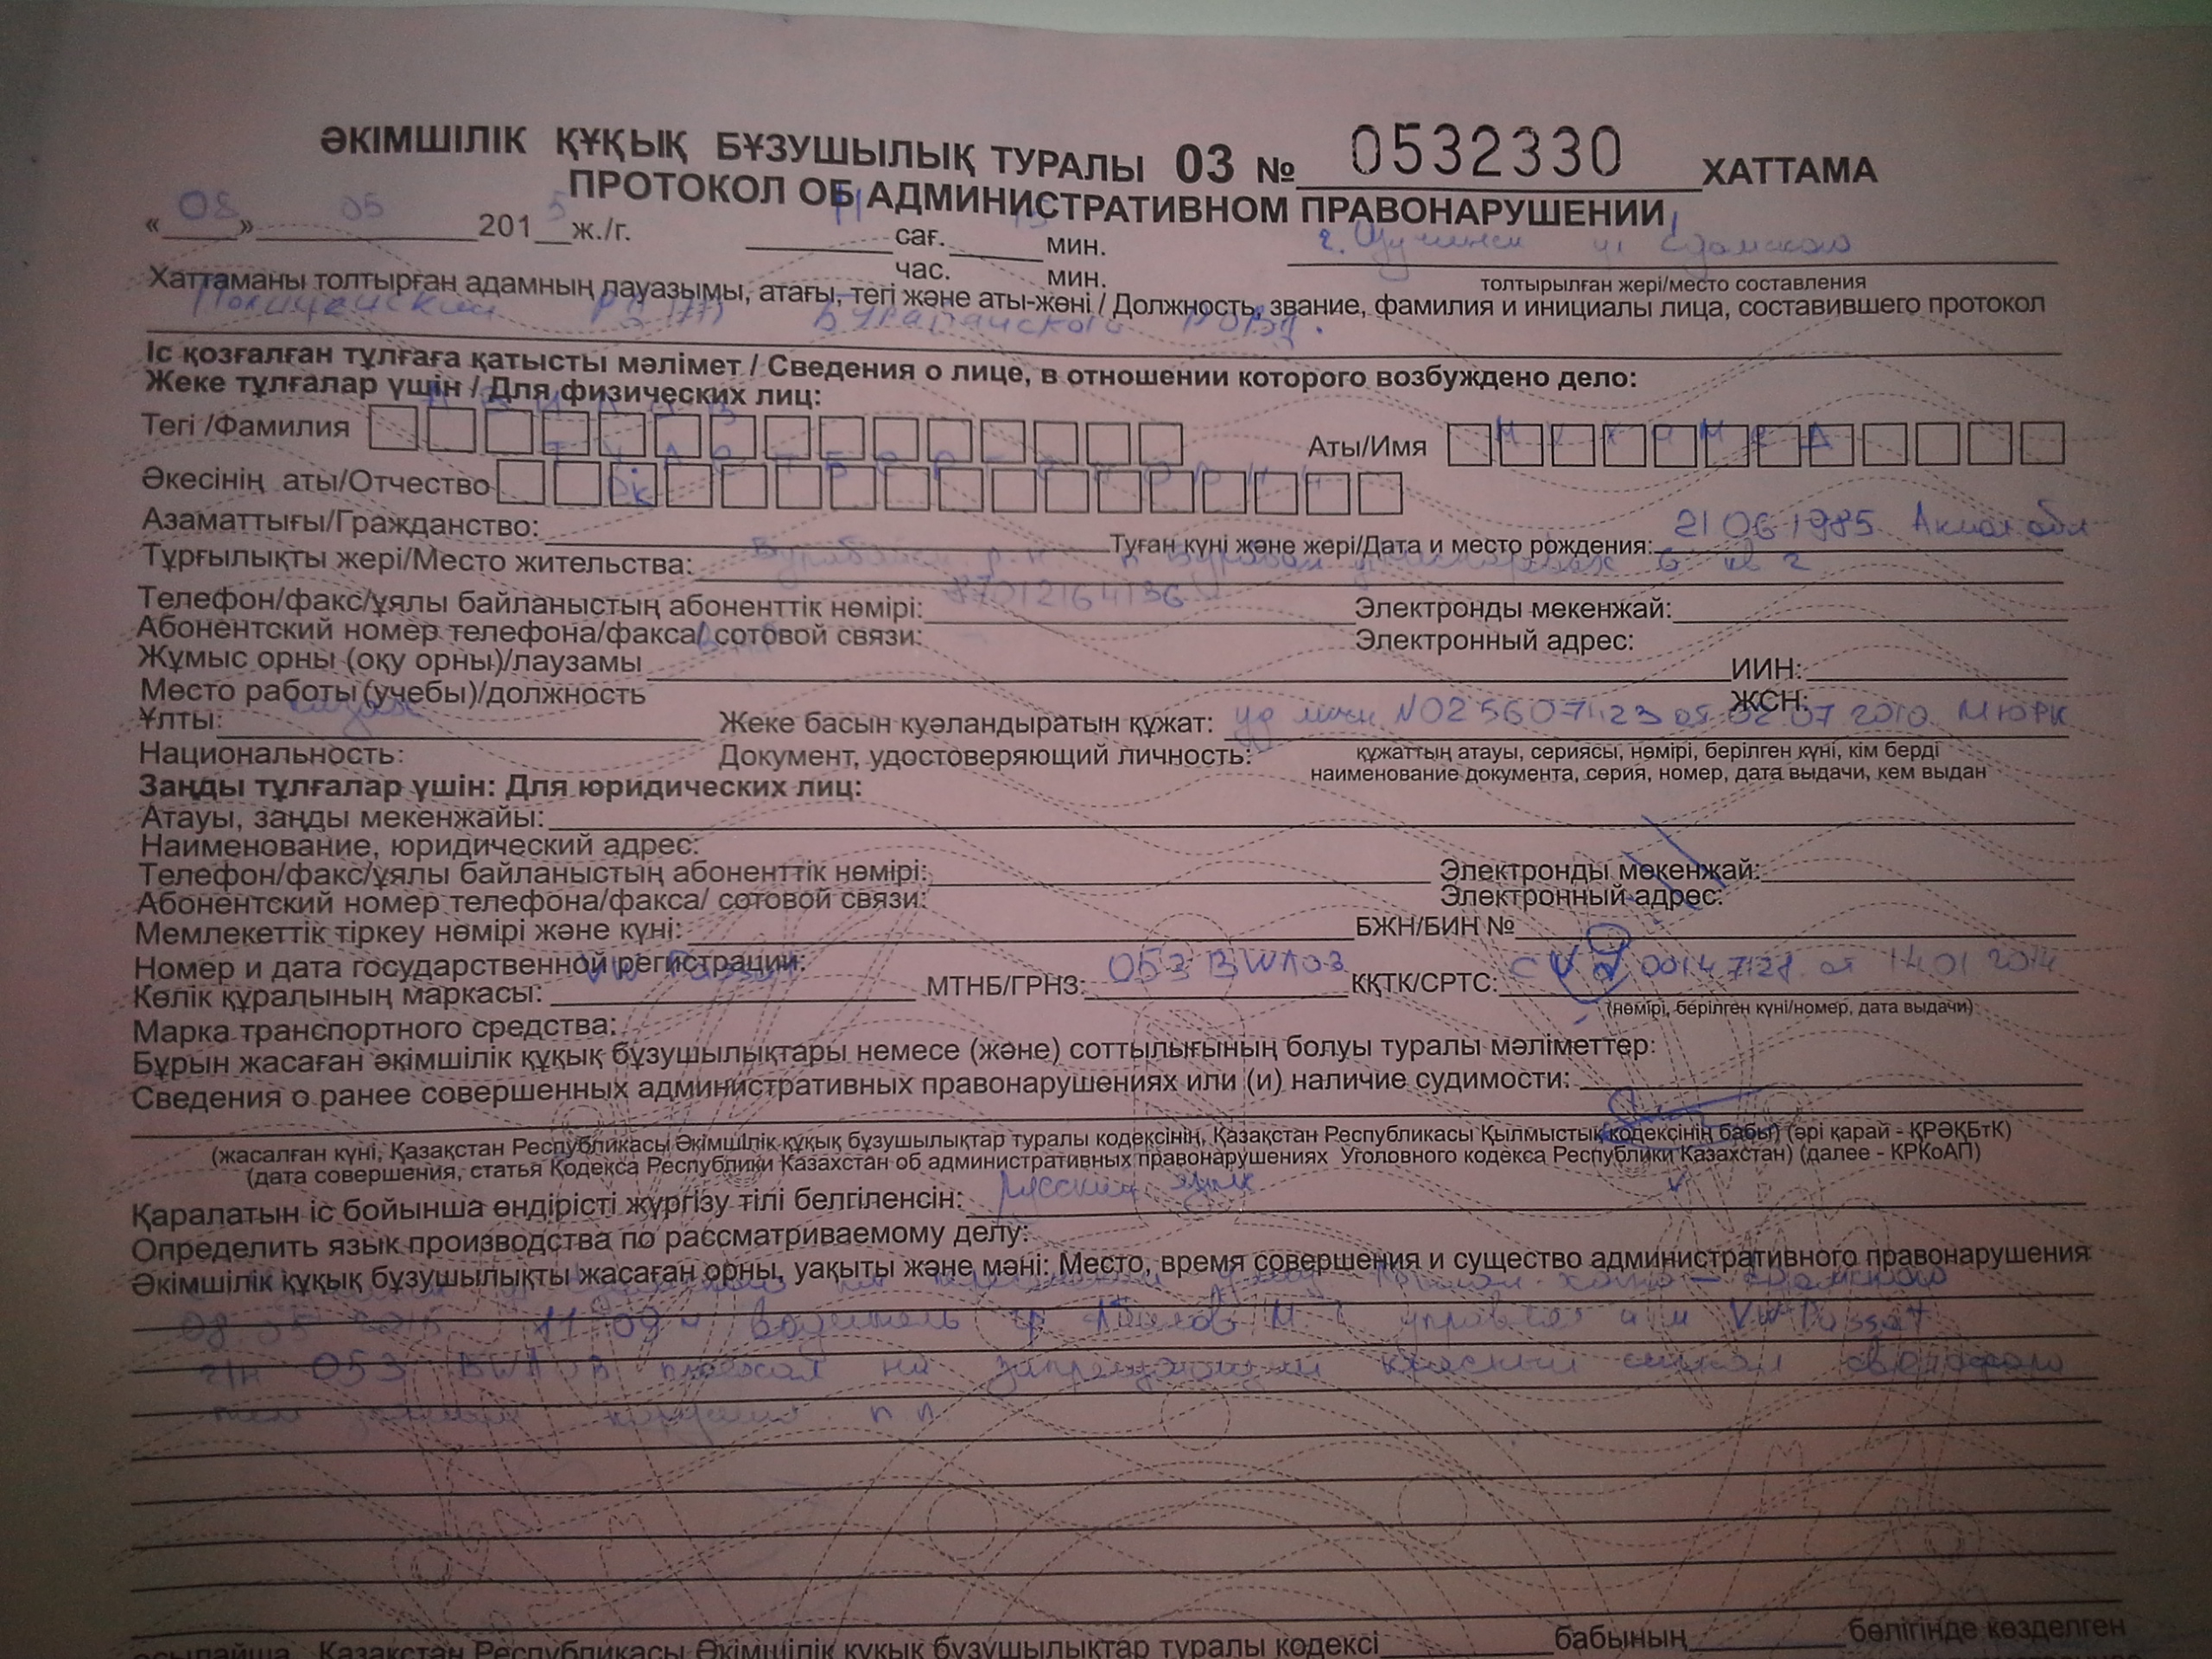 ӘКІМШІЛІК ҚҰҚЫҚ БҰЗУШЫЛЫҚ ТУРАЛЫ 03 № 0532330 ХАТТАМА
ПРОТОКОЛ ОБ АДМИНИСТРАТИВНОМ ПРАВОНАРУШЕНИИ
« 08 » 05 2015 ж./г. 11 сағ. 15 мин. г. Щучинск ул
час. мин. толтырылған жері/место составления
Хаттаманы толтырған адамның лауазымы, атағы, тегі және аты-жөні / Должность, звание, фамилия и инициалы лица, составившего протокол
Полицейский Бурабайского РОВД.
Іс қозғалған тұлғаға қатысты мәлімет / Сведения о лице, в отношении которого возбуждено дело:
Жеке тұлғалар үшін / Для физических лиц:
Тегі /Фамилия Аты/Имя МУХАМЕД
Әкесінің аты/Отчество
Азаматтығы/Гражданство: РК Туған күні және жері/Дата и место рождения: 21 06 1985 Акмол обл
Тұрғылықты жері/Место жительства: Бурабай 6 кв 2
Телефон/факс/ұялы байланыстың абоненттік нөмірі: 87012164136 Электронды мекенжай:
Абонентский номер телефона/факса/ сотовой связи: Электронный адрес:
Жұмыс орны (оқу орны)/лаузамы ИИН:
Место работы (учебы)/должность ЖСН:
Ұлты: казах Жеке басын куәландыратын құжат: уд личн N025607123 от 02.07 2010 МЮРК
Национальность: Документ, удостоверяющий личность: құжаттың атауы, сериясы, нөмірі, берілген күні, кім берді
наименование документа, серия, номер, дата выдачи, кем выдан
Заңды тұлғалар үшін: Для юридических лиц:
Атауы, заңды мекенжайы:
Наименование, юридический адрес:
Телефон/факс/ұялы байланыстың абоненттік нөмірі: Электронды мекенжай:
Абонентский номер телефона/факса/ сотовой связи: Электронный адрес:
Мемлекеттік тіркеу нөмірі және күні: БЖН/БИН №
Номер и дата государственной регистрации:
Көлік құралының маркасы: VW Passat МТНБ/ГРНЗ: 053 BWA03 ҚҚТК/СРТС: 00147128 от 14 01 2014
Марка транспортного средства: (нөмірі, берілген күні/номер, дата выдачи)
Бұрын жасаған әкімшілік құқық бұзушылықтары немесе (және) соттылығының болуы туралы мәліметтер:
Сведения о ранее совершенных административных правонарушениях или (и) наличие судимости:
(жасалған күні, Қазақстан Республикасы Әкімшілік құқық бұзушылықтар туралы кодексінің, Қазақстан Республикасы Қылмыстық кодексінің бабы) (әрі қарай - ҚРӘҚБтК)
(дата совершения, статья Кодекса Республики Казахстан об административных правонарушениях Уголовного кодекса Республики Казахстан) (далее - КРКоАП)
Қаралатын іс бойынша өндірісті жүргізу тілі белгіленсін: русский язык
Определить язык производства по рассматриваемому делу:
Әкімшілік құқық бұзушылықты жасаған орны, уақыты және мәні: Место, время совершения и существо административного правонарушения
08 05 2015 11 09 ч водитель гр М. управляя а м VW Passat
г/н 053 BWA 03 проехал на запрещающий красный сигнал светофора
тем самым нарушил п п
осылайша Қазақстан Республикасы Әкімшілік құқық бұзушылықтар туралы кодексі бабының бөлігінде көзделген